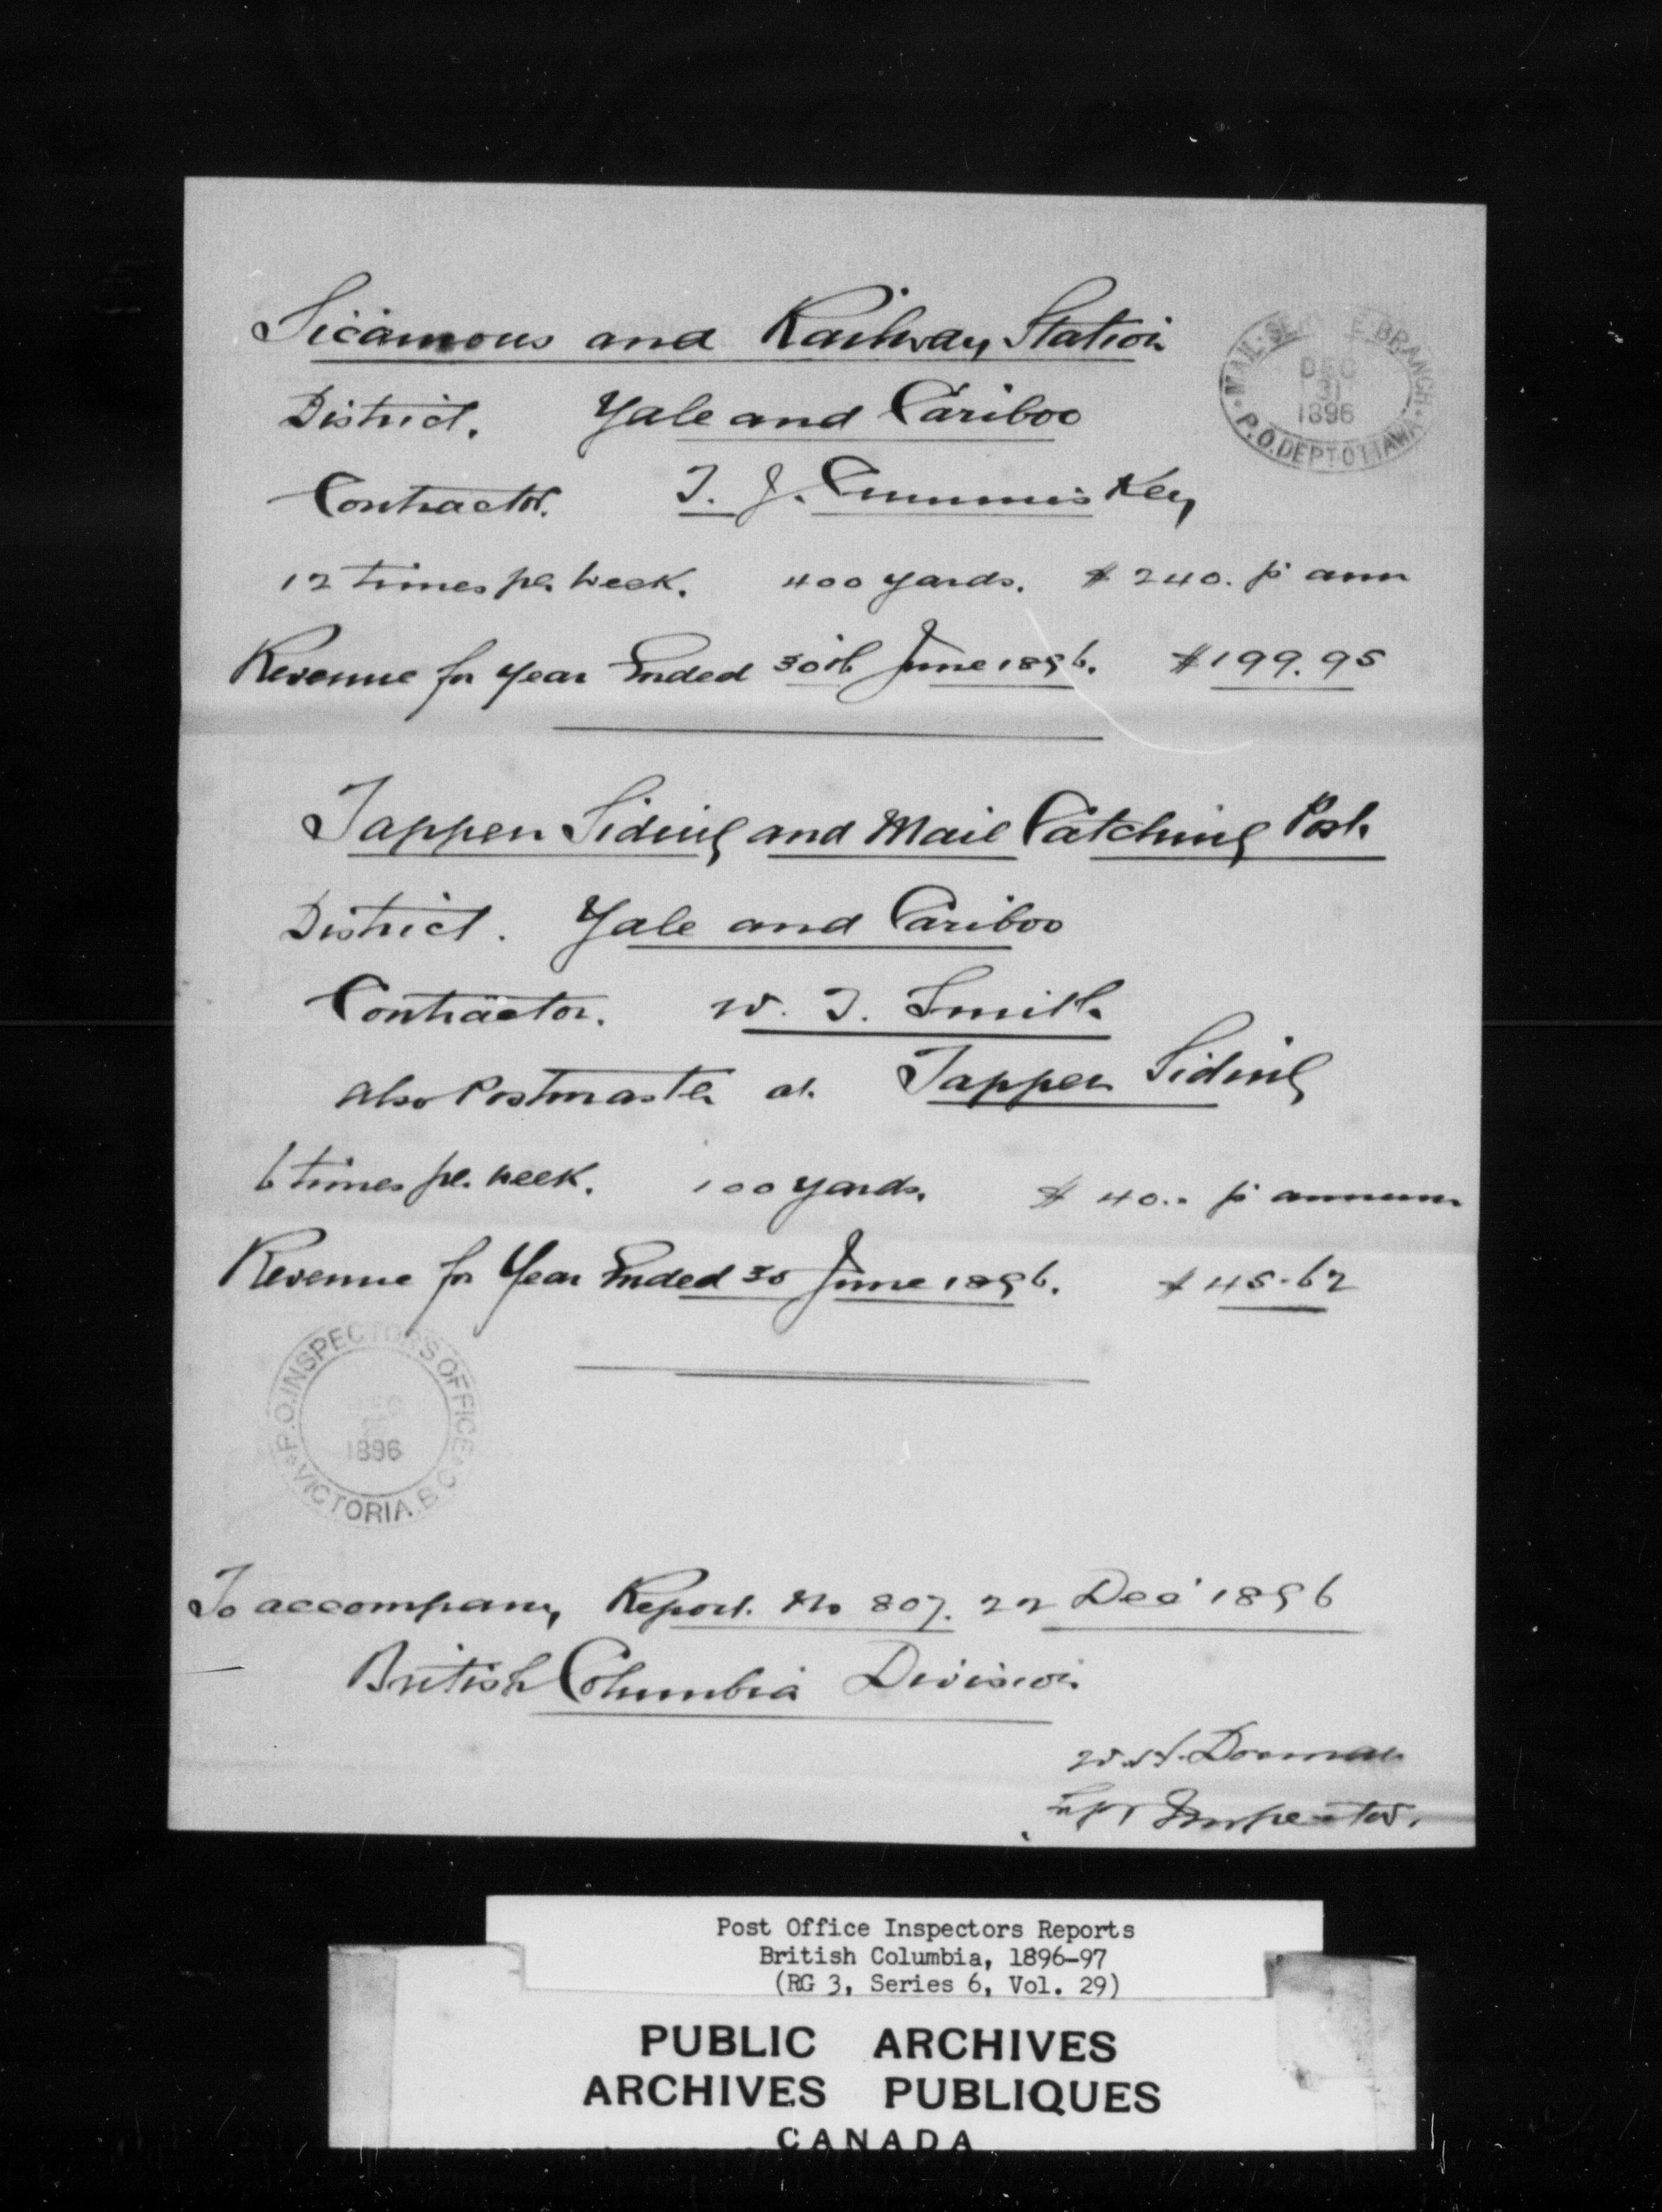 Sicamous and Railway Station
MAIL SERVICE BRANCH
DEC
31
1896
P.O. DEPT OTTAWA
District. Yale and Cariboo
Contractor. T. J. Cummiskey
12 times per week. 400 yards. $240. p ann
Revenue for Year Ended 30th June 1896. $199.95
Tappen Siding and Mail Catching Post.
District. Yale and Cariboo
Contractor. W. T. Smith
also Postmaster at Tappen Siding
6 times per week. 100 yards. $40.. p annum
Revenue for Year Ended 30 June 1896. $45.62
P.O. INSPECTOR'S OFFICE
DEC
1896
VICTORIA B.C.
To accompany Report No 807. 22 Dec 1896
British Columbia Division
W. H. Dorman
Inspector.
Post Office Inspectors Reports
British Columbia, 1896-97
(RG 3, Series 6, Vol. 29)
PUBLIC ARCHIVES
ARCHIVES PUBLIQUES
CANADA